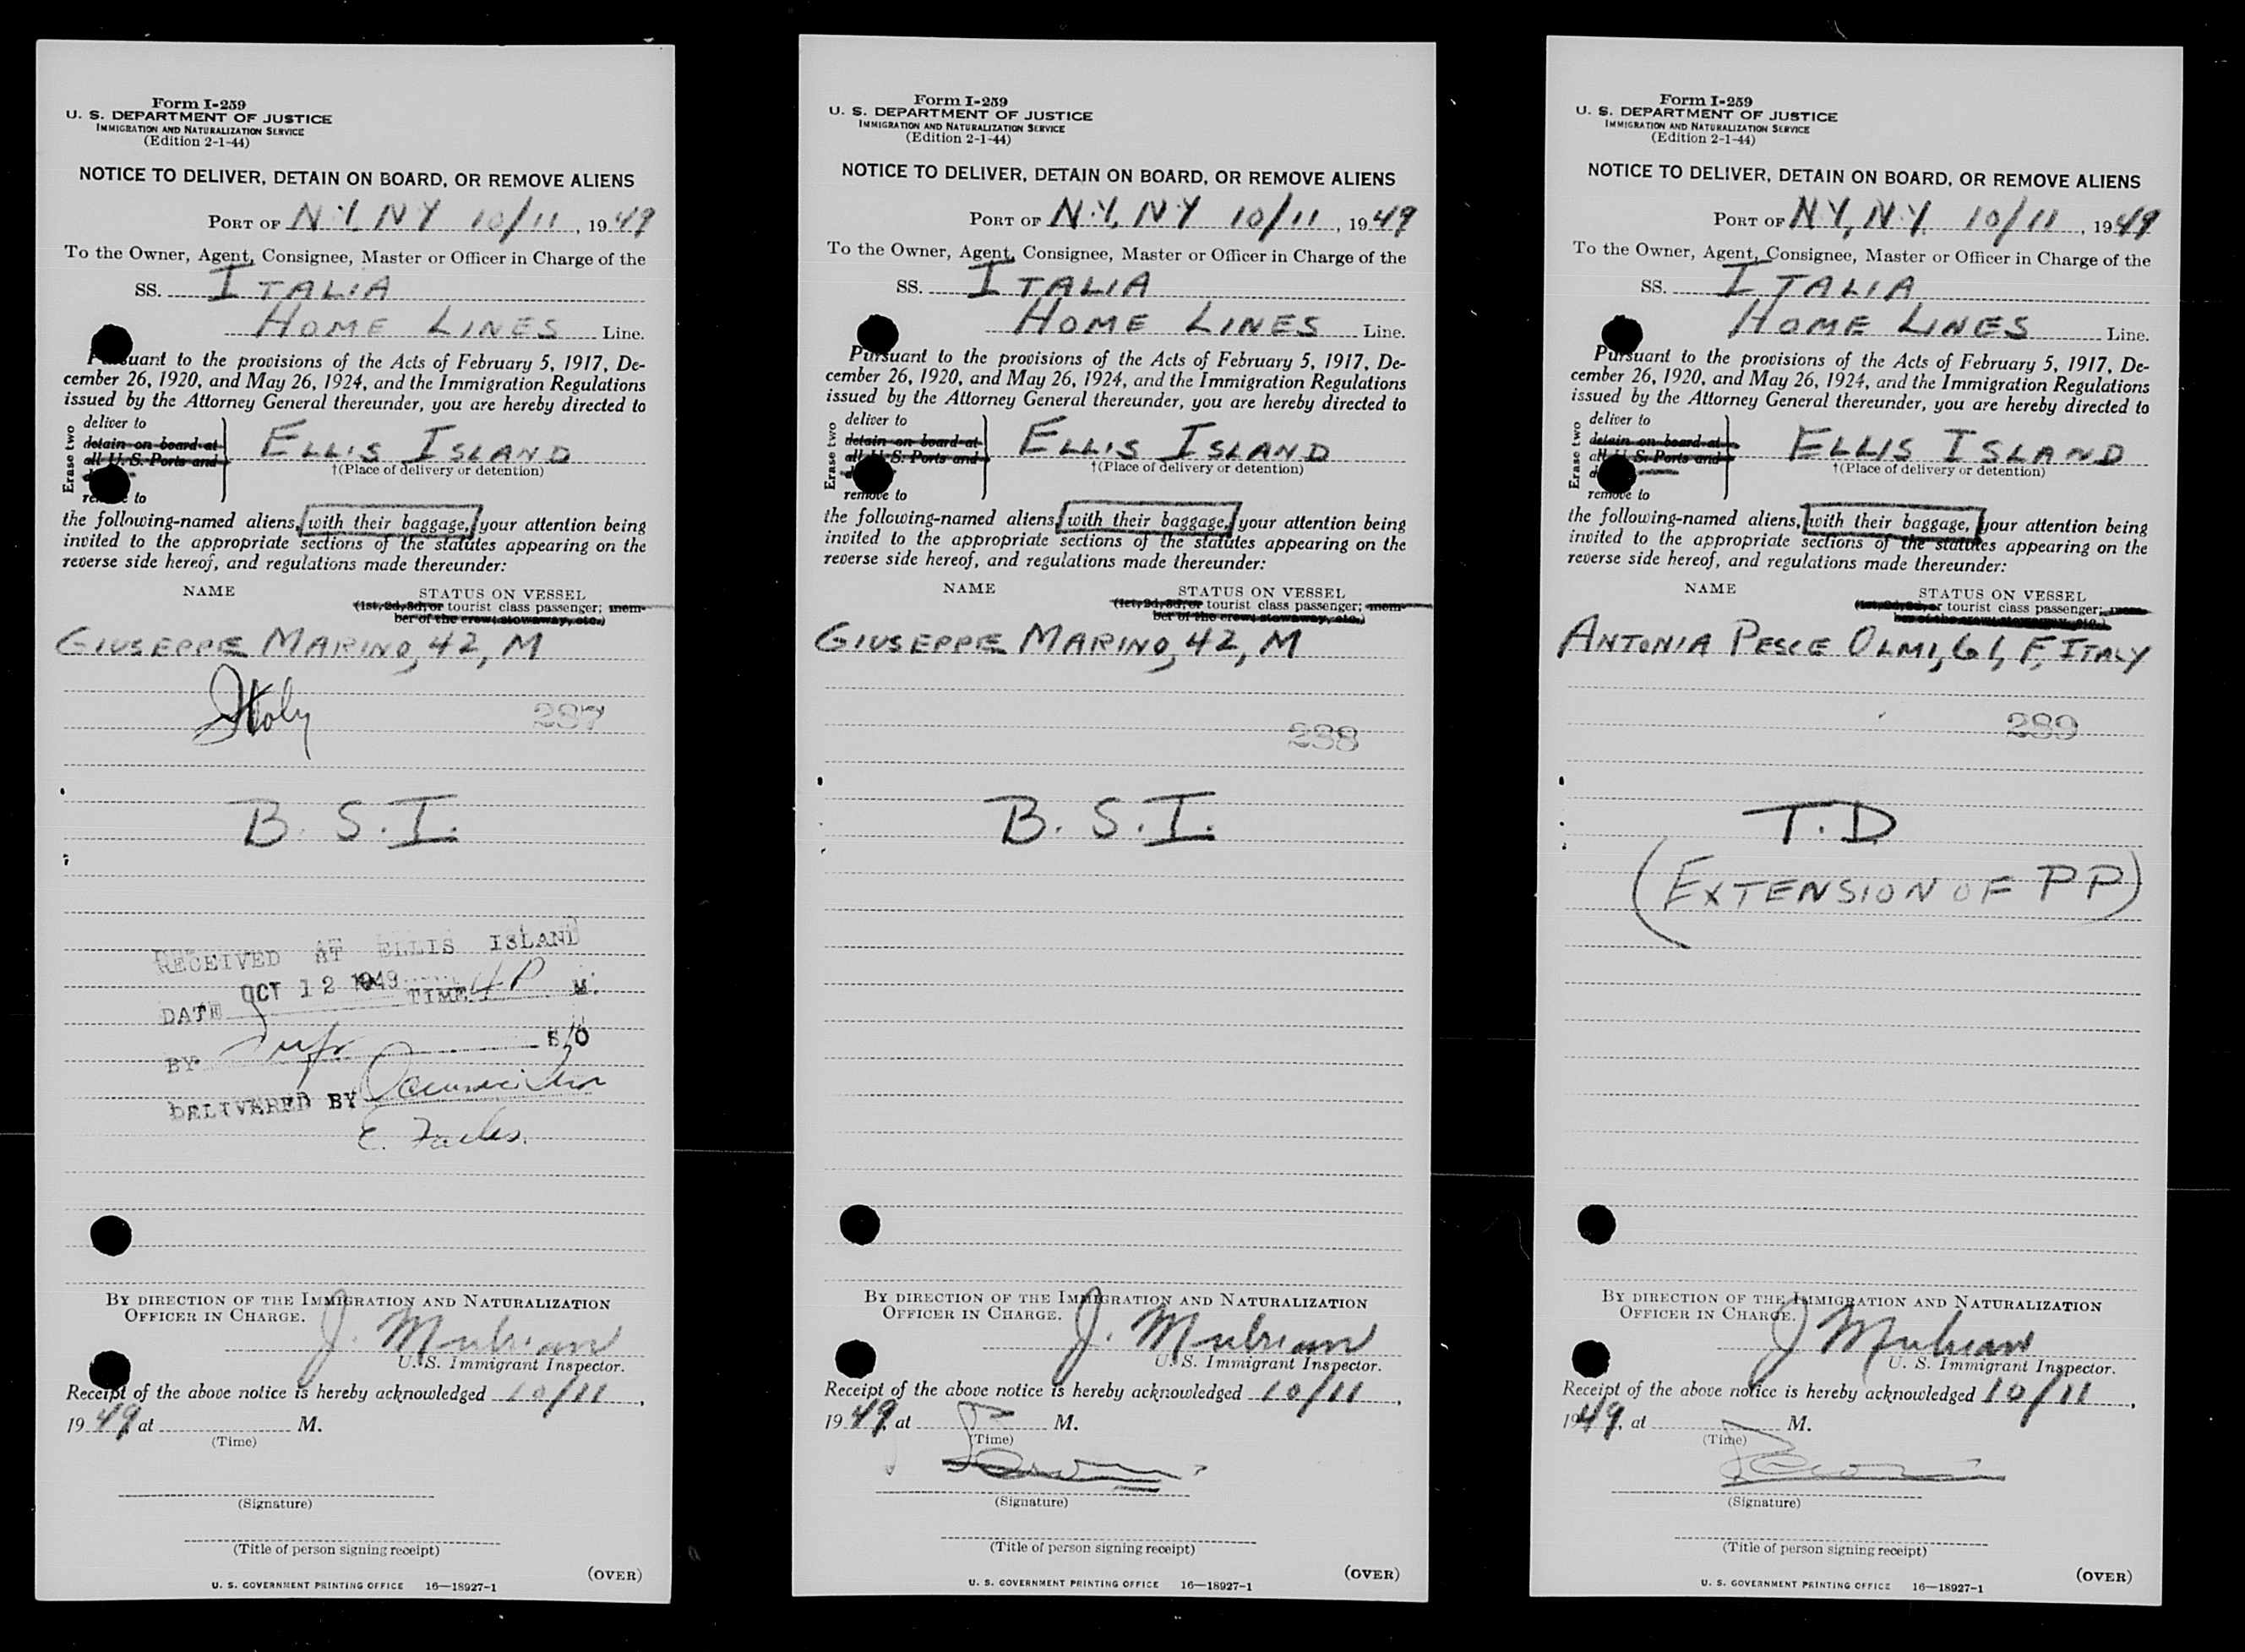 Form I-259
U. S. DEPARTMENT OF JUSTICE
IMMIGRATION AND NATURALIZATION SERVICE
(Edition 2-1-44)
NOTICE TO DELIVER, DETAIN ON BOARD, OR REMOVE ALIENS
PORT OF N.Y, NY 10/11, 1949
To the Owner, Agent, Consignee, Master or Officer in Charge of the
SS. ITALIA
HOME LINES Line.
Pursuant to the provisions of the Acts of February 5, 1917, De-
cember 26, 1920, and May 26, 1924, and the Immigration Regulations
issued by the Attorney General thereunder, you are hereby directed to
Erase two
deliver to
detain on board at
all U. S. Ports and
remove to
ELLIS ISLAND
†(Place of delivery or detention)
the following-named aliens, with their baggage, your attention being
invited to the appropriate sections of the statutes appearing on the
reverse side hereof, and regulations made thereunder:
NAME STATUS ON VESSEL
(1st, 2d, 3d, or tourist class passenger; mem-
ber of the crew; stowaway, etc.)
GIUSEPPE MARINO, 42, M
Italy 237
B. S. I.
RECEIVED AT ELLIS ISLAND
DATE OCT 12 1949 TIME 4 P M.
BY S/O
DELIVERED BY
BY DIRECTION OF THE IMMIGRATION AND NATURALIZATION
OFFICER IN CHARGE.
J. Mubrian
U. S. Immigrant Inspector.
Receipt of the above notice is hereby acknowledged 10/11,
1949, at M.
(Time)
(Signature)
(Title of person signing receipt)
(OVER)
U. S. GOVERNMENT PRINTING OFFICE 16—18927-1
Form I-259
U. S. DEPARTMENT OF JUSTICE
IMMIGRATION AND NATURALIZATION SERVICE
(Edition 2-1-44)
NOTICE TO DELIVER, DETAIN ON BOARD, OR REMOVE ALIENS
PORT OF N.Y, NY 10/11, 1949
To the Owner, Agent, Consignee, Master or Officer in Charge of the
SS. ITALIA
HOME LINES Line.
Pursuant to the provisions of the Acts of February 5, 1917, De-
cember 26, 1920, and May 26, 1924, and the Immigration Regulations
issued by the Attorney General thereunder, you are hereby directed to
Erase two
deliver to
detain on board at
all U. S. Ports and
remove to
ELLIS ISLAND
†(Place of delivery or detention)
the following-named aliens, with their baggage, your attention being
invited to the appropriate sections of the statutes appearing on the
reverse side hereof, and regulations made thereunder:
NAME STATUS ON VESSEL
(1st, 2d, 3d, or tourist class passenger; mem-
ber of the crew; stowaway, etc.)
GIUSEPPE MARINO, 42, M
238
B. S. I.
BY DIRECTION OF THE IMMIGRATION AND NATURALIZATION
OFFICER IN CHARGE.
J. Mubrian
U. S. Immigrant Inspector.
Receipt of the above notice is hereby acknowledged 10/11,
1949, at M.
(Time)
(Signature)
(Title of person signing receipt)
(OVER)
U. S. GOVERNMENT PRINTING OFFICE 16—18927-1
Form I-259
U. S. DEPARTMENT OF JUSTICE
IMMIGRATION AND NATURALIZATION SERVICE
(Edition 2-1-44)
NOTICE TO DELIVER, DETAIN ON BOARD, OR REMOVE ALIENS
PORT OF N.Y, N.Y. 10/11, 1949
To the Owner, Agent, Consignee, Master or Officer in Charge of the
SS. ITALIA
HOME LINES Line.
Pursuant to the provisions of the Acts of February 5, 1917, De-
cember 26, 1920, and May 26, 1924, and the Immigration Regulations
issued by the Attorney General thereunder, you are hereby directed to
Erase two
deliver to
detain on board at
all U. S. Ports and
remove to
ELLIS ISLAND
†(Place of delivery or detention)
the following-named aliens, with their baggage, your attention being
invited to the appropriate sections of the statutes appearing on the
reverse side hereof, and regulations made thereunder:
NAME STATUS ON VESSEL
(1st, 2d, 3d, or tourist class passenger; mem-
ber of the crew; stowaway, etc.)
ANTONIA PESCE OLMI, 61, F, ITALY
239
T. D
(EXTENSION OF PP)
BY DIRECTION OF THE IMMIGRATION AND NATURALIZATION
OFFICER IN CHARGE.
J Mubrian
U. S. Immigrant Inspector.
Receipt of the above notice is hereby acknowledged 10/11,
1949, at M.
(Time)
(Signature)
(Title of person signing receipt)
(OVER)
U. S. GOVERNMENT PRINTING OFFICE 16—18927-1